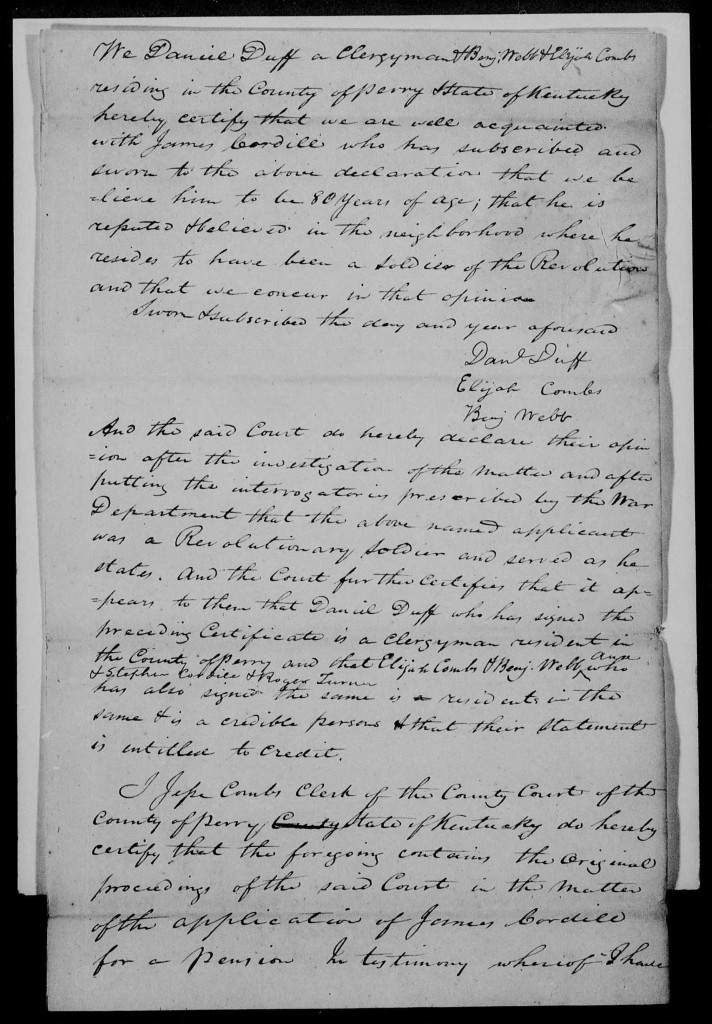 We Daniel Duff a Clergyman & Benj. Webb & Elijah Combs
residing in the County of perry & State of Kentucky
hereby certify that we are well acquainted
with James Cordill who has subscribed and
sworn to the above declaration that we be
=lieve him to be 80 Years of age; that he is
reputed & believed in the neighborhood where he
resides to have been a soldier of the Revolution
and that we concur in that opinion
Sworn & subscribed the day and year aforesaid
Danl Duff
Elijah Combs
Benj Webb
And the said Court do hereby declare their opin
=ion after the investigation of the matter and after
putting the interrogatories prescribed by the War
Department that the above named applicant
was a Revolutionary Soldier and served as he
states. And the Court further Certifies that it ap=
=pears to them that Daniel Duff who has signed the
preceding Certificate is a Clergyman resident in
the County of perry and that Elijah Combs & Benj. Webb who
& Stephen Cordill & Roger Turner
has also signed the same is a residents in the
same & is a credible persons & that their statement
is intitled to credit.
I Jesse Combs Clerk of the County Court of the
County of perry, County State of Kentucky do hereby
certify that the foregoing contains the original
proceedings of the said Court in the matter
of the application of James Cordill
for a pension In testimony whereof I have